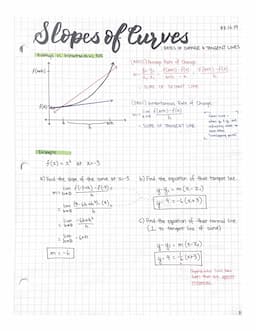 Slopes of Curves
RATES OF CHANGE & TANGENT LINES
Average vs. Instantaneous ROC
(AROC) Average Rate of Change
= SLOPE OF SECANT LINE
(IROC) Instantaneous Rate of Change
= SLOPE OF TANGENT LINE
Example
f(x) = x² at x=-3
a) Find the slope of the curve at x=-3
m = lim h→0 f(-3+h) - f(-3) / h
= lim h→0 (9-6h+h²) - (9) / h
= lim h→0 -6h+h² / h
= lim h→0 -6+h
m = -6
b) Find the equation of that tangent line.
y-y₁ = m(x-x₁)
y-9 = -6(x+3)
c) Find the equation of that normal line.
(⊥ to tangent line at point)
y-y₁ = m(x-x₁)
y-9 = 1/6(x+3)